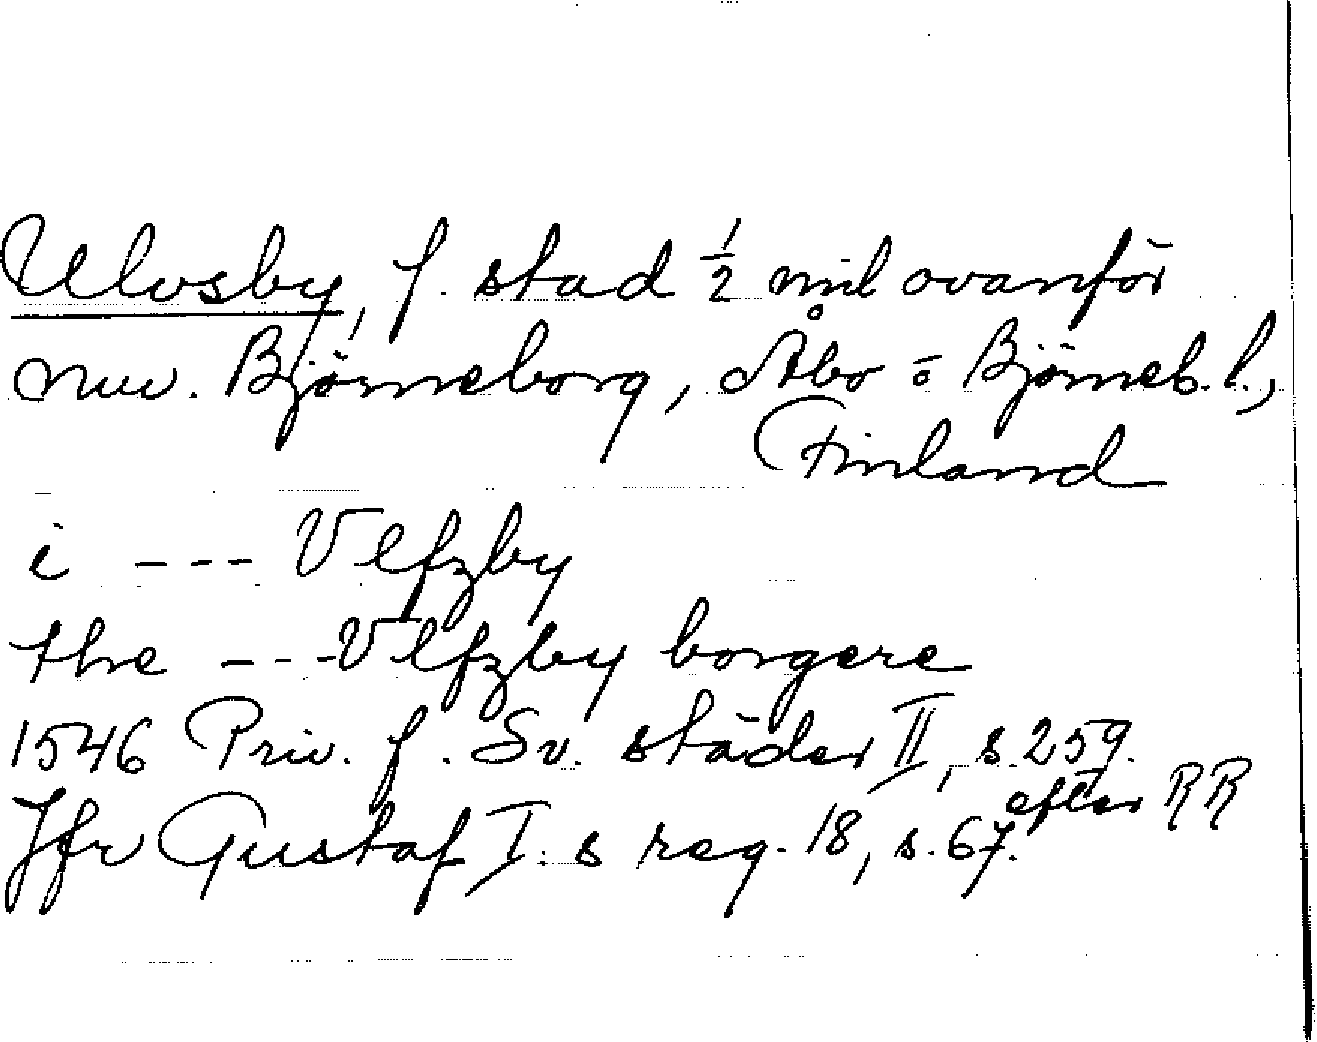 Ulvsby, f. stad 1/2 mil ovanför
nuv. Björneborg, Åbo o Björneb. l.,
Finland
i --- Vlfzby
the --- Vlfzby borgere
1546 Priv. f. Sv. städer II, s. 259.
efter RR
Jfr Gustaf I:s reg. 18, s. 67.